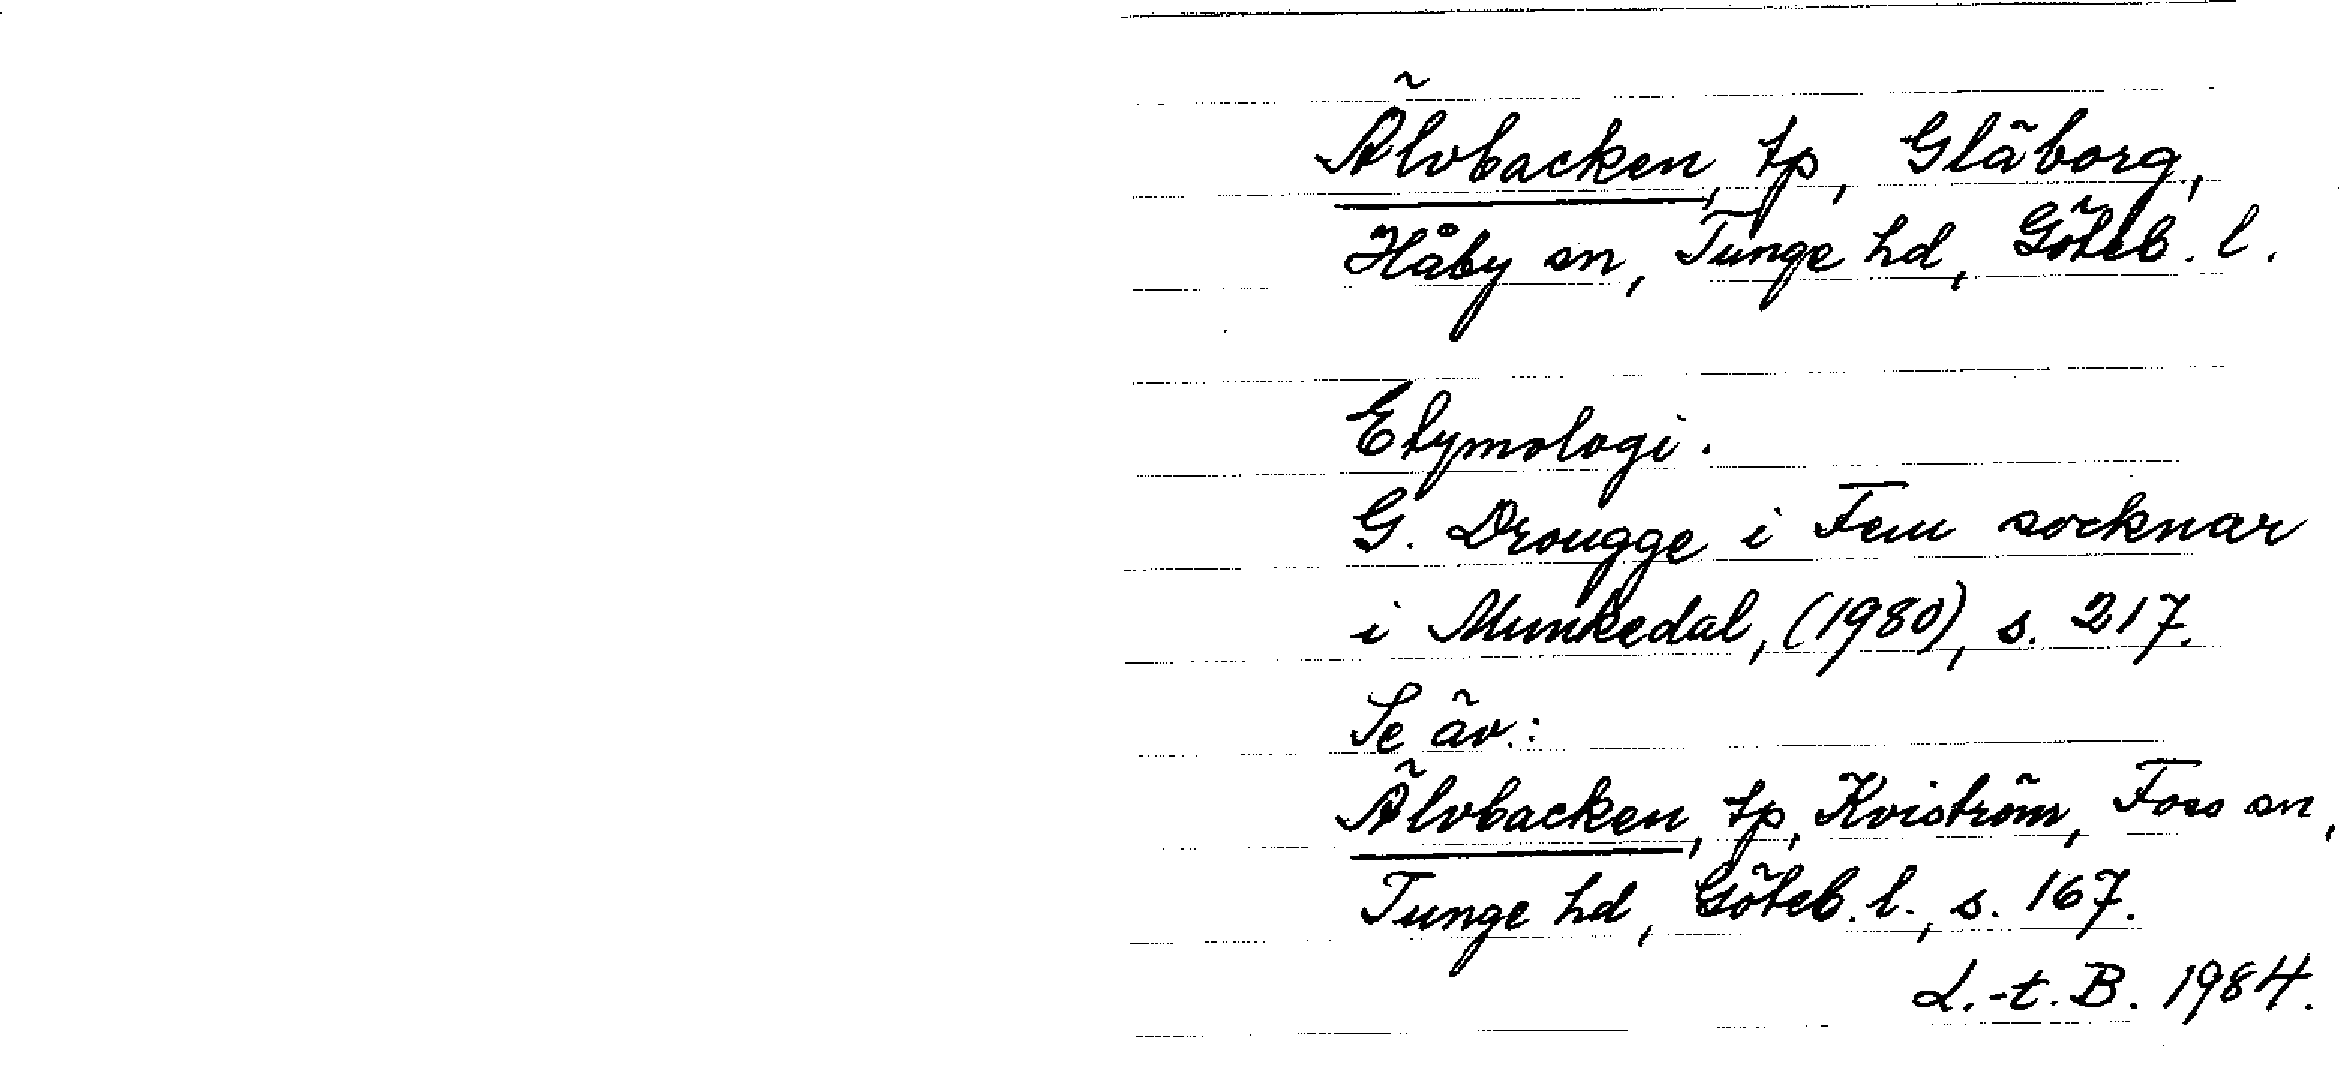 Älvbacken, tp, Gläborg,
Håby sn, Tunge hd, Göteb. l.
Etymologi.
G. Drougge i Fem socknar
i Munkedal, (1980), s. 217.
Se äv.:
Älvbacken, tp, Kviström, Foss sn,
Tunge hd, Göteb. l., s. 167.
L.-t. B. 1984.